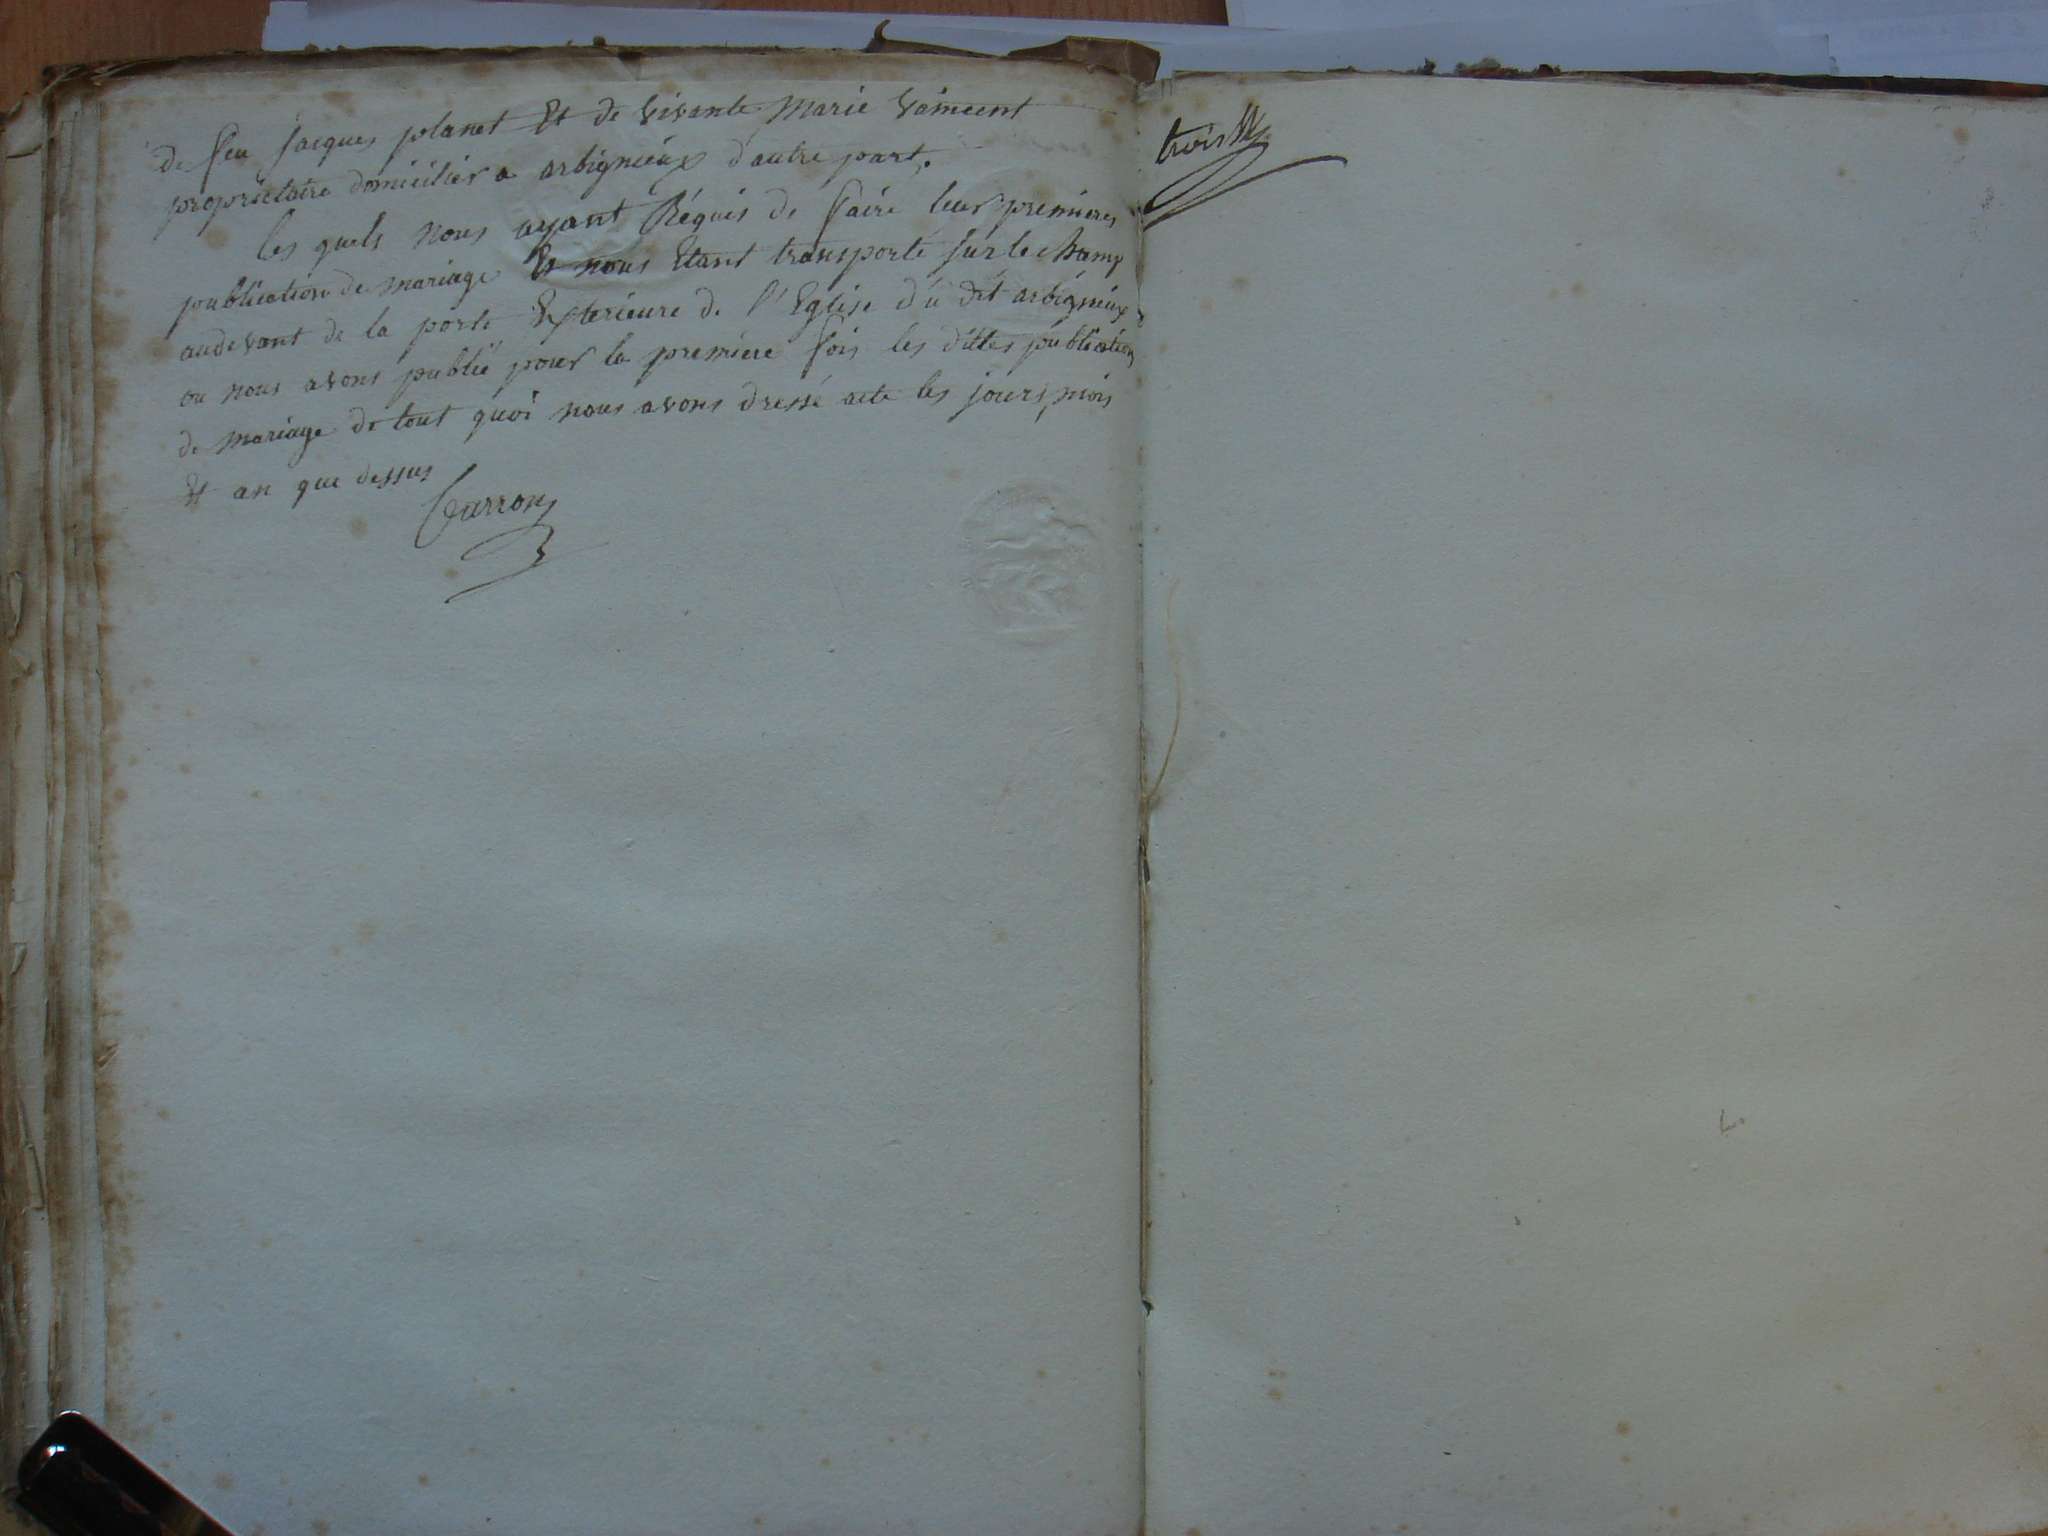 de feu Jacques planet Et de vivante Marie Vaincent
propriétaire domicilier a arbignieux d'autre part.
les quels nous ayant Réquis de faire leur premieres
publication de mariage Et nous Etant transporté sur le champ
audevant de la porte Exterieure de l'Eglise du dit arbignieux
ou nous avons publié pour la premiere fois les dittes publication
de mariage de tout quoi nous avons dressé acte les jours, mois
Et an que dessus
Carron
trois